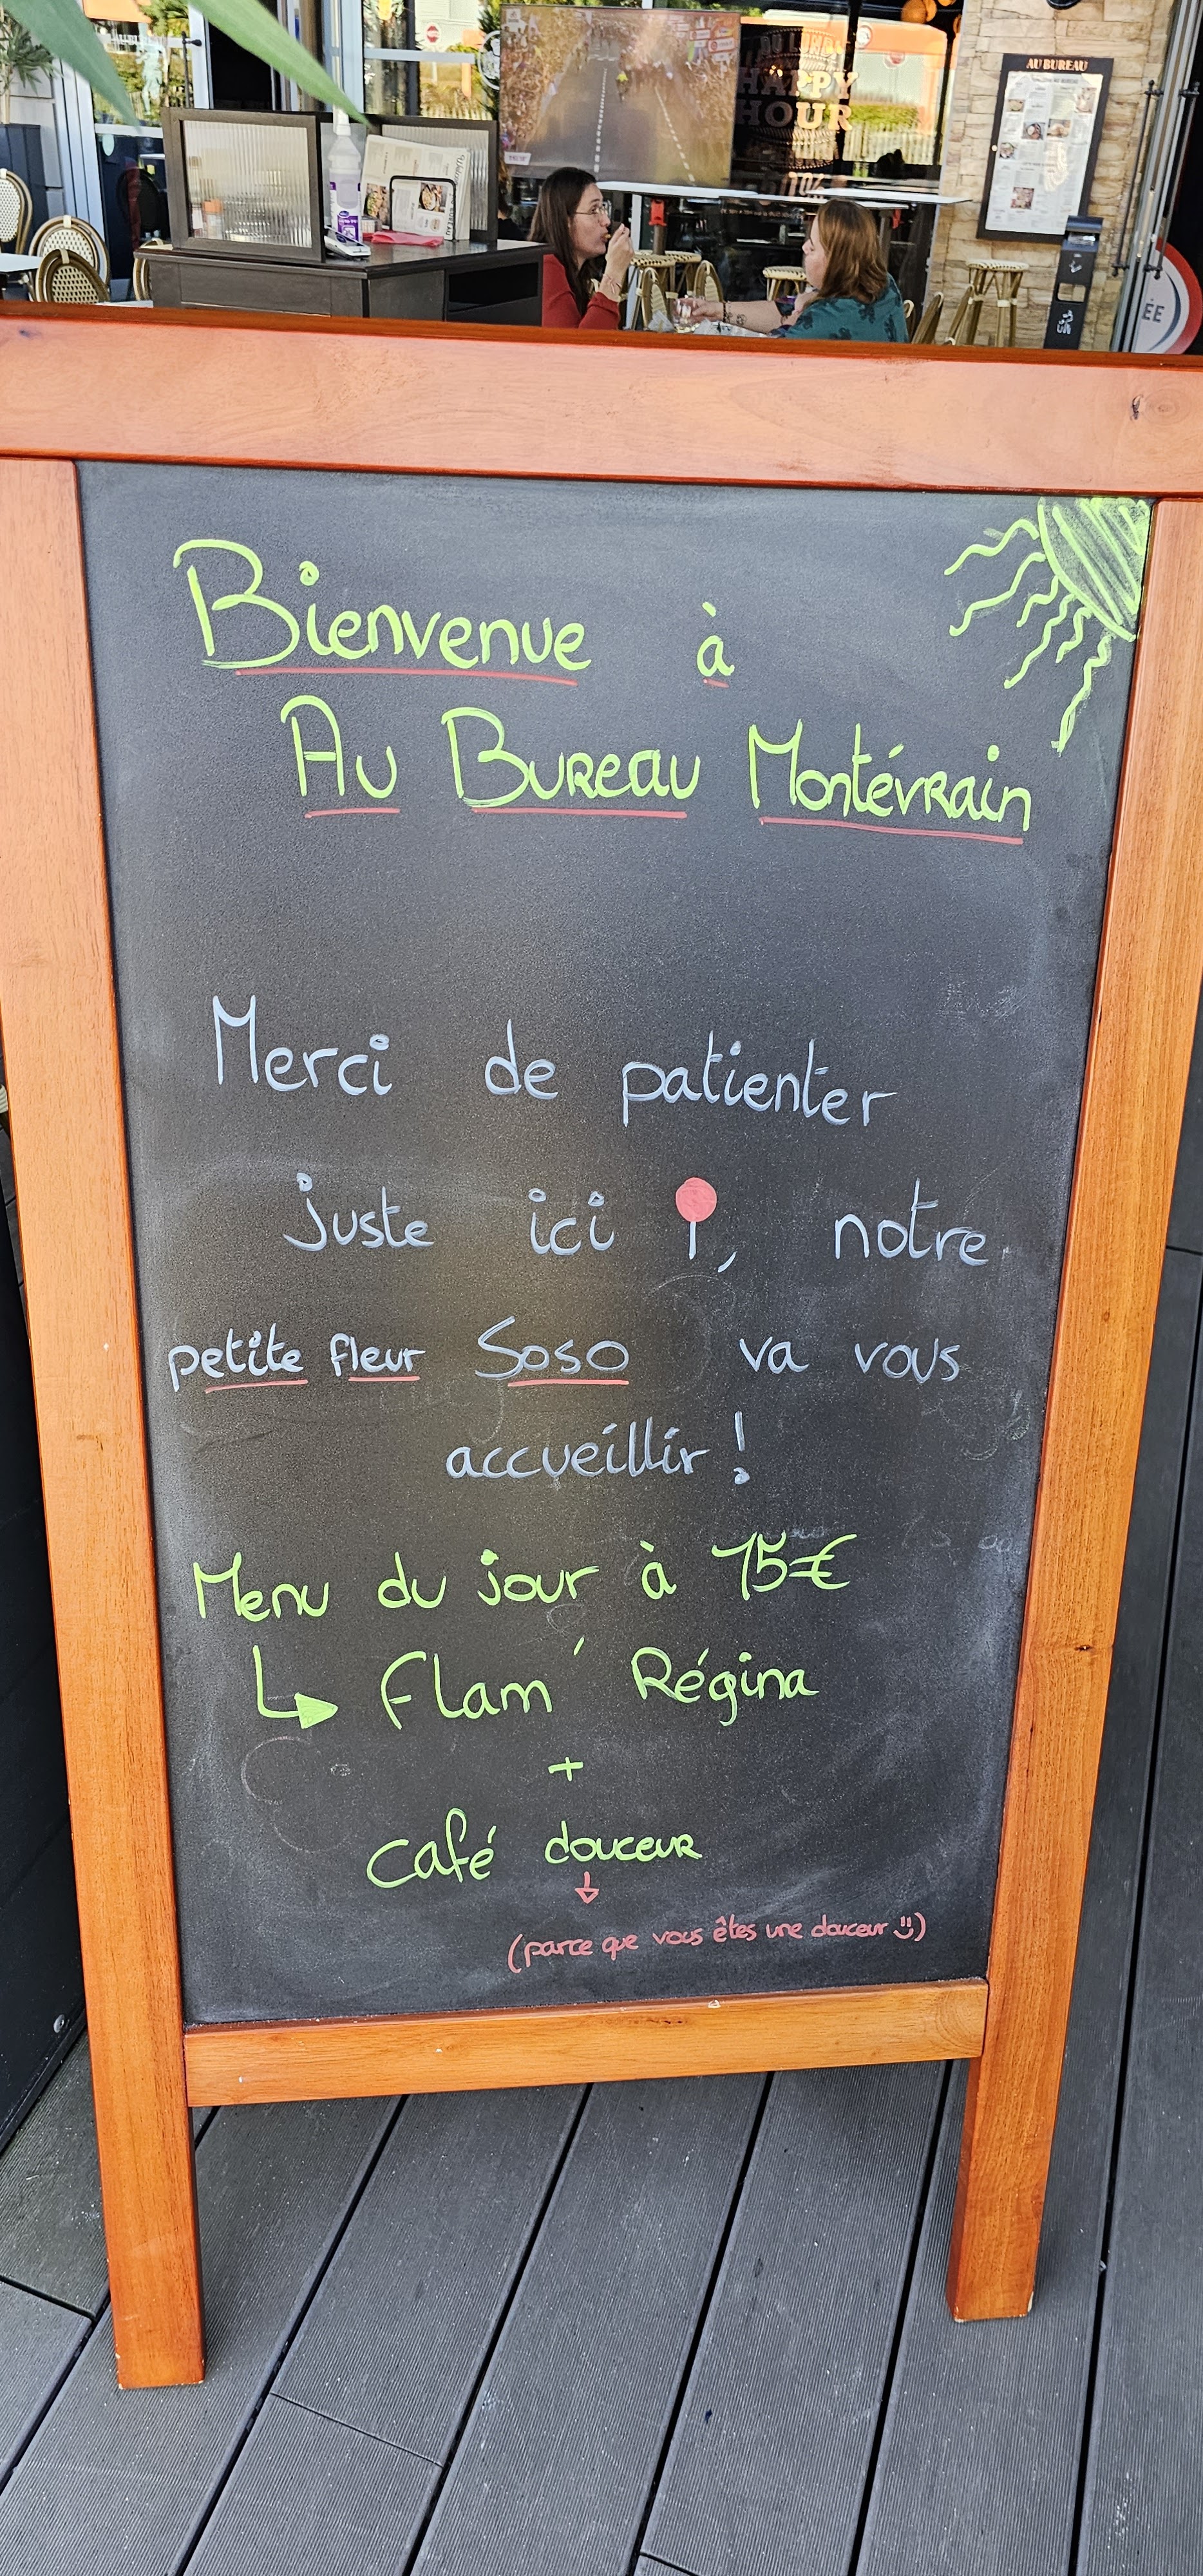 AU BUREAU
HAPPY
HOUR
ÉE
Bienvenue à
Au Bureau Montévrain
Merci de patienter
juste ici 📍, notre
petite fleur Soso va vous
accueillir !
Menu du jour à 15€
↳ Flam' Régina
+
Café douceur
↓
(parce que vous êtes une douceur :))